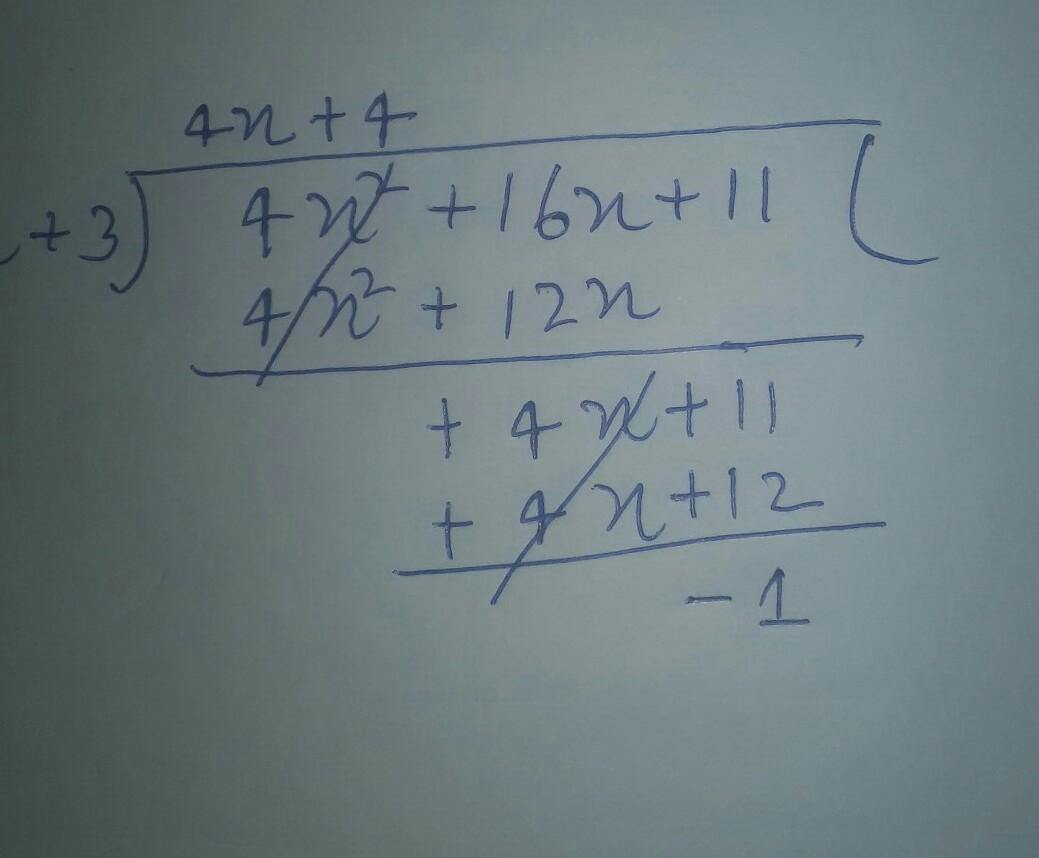 4x + 4
+3) 4x² + 16x + 11 (
4x² + 12x
+ 4x + 11
+ 4x + 12
- 1